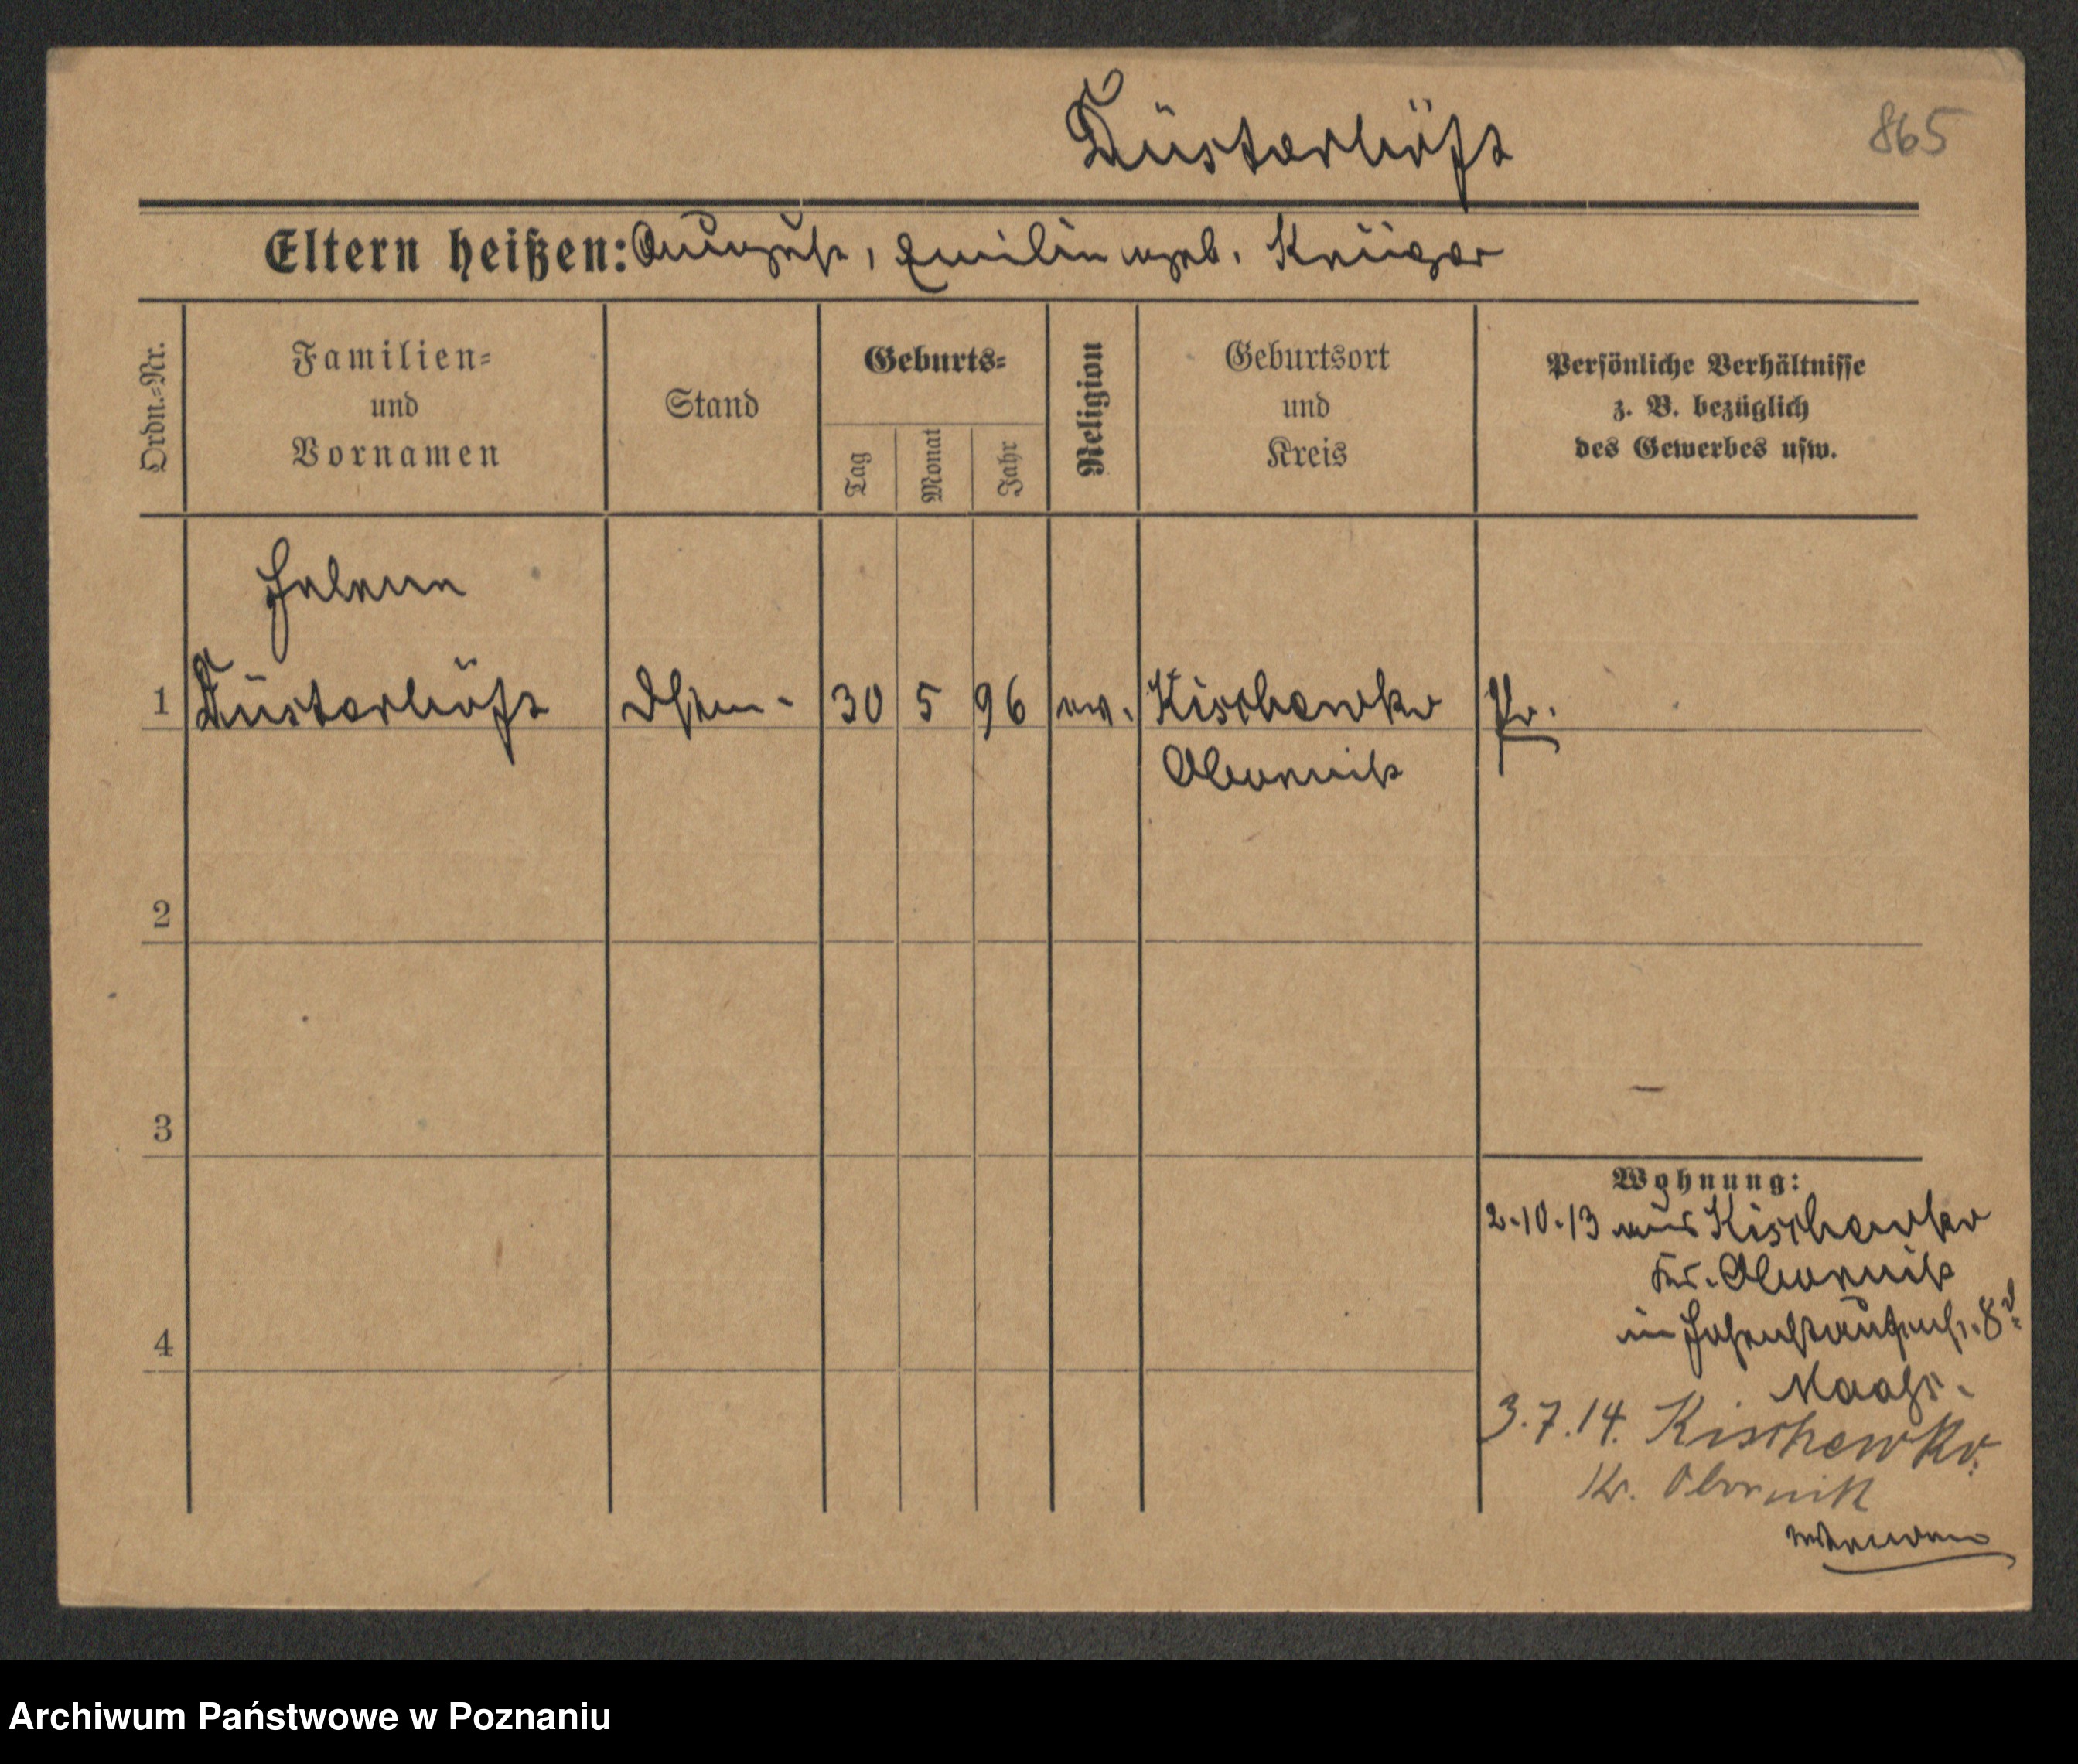 Düsterhöft
865
Eltern heißen: August, Emilie geb. Krüger
Ordn.-Nr.
Familien-
und
Vornamen
Stand
Geburts-
Tag
Monat
Jahr
Religion
Geburtsort
und
Kreis
Persönliche Verhältnisse
z. B. bezüglich
des Gewerbes usw.
Helene
1 Düsterhöft 30 5 96 ev. Kischewko Pr.
Obornik
2
3
4
Wohnung:
2.10.13 aus Kischewko
Kr. Obornik
in
3.7.14. Kischewko
Kr. Obornik
Archiwum Państwowe w Poznaniu